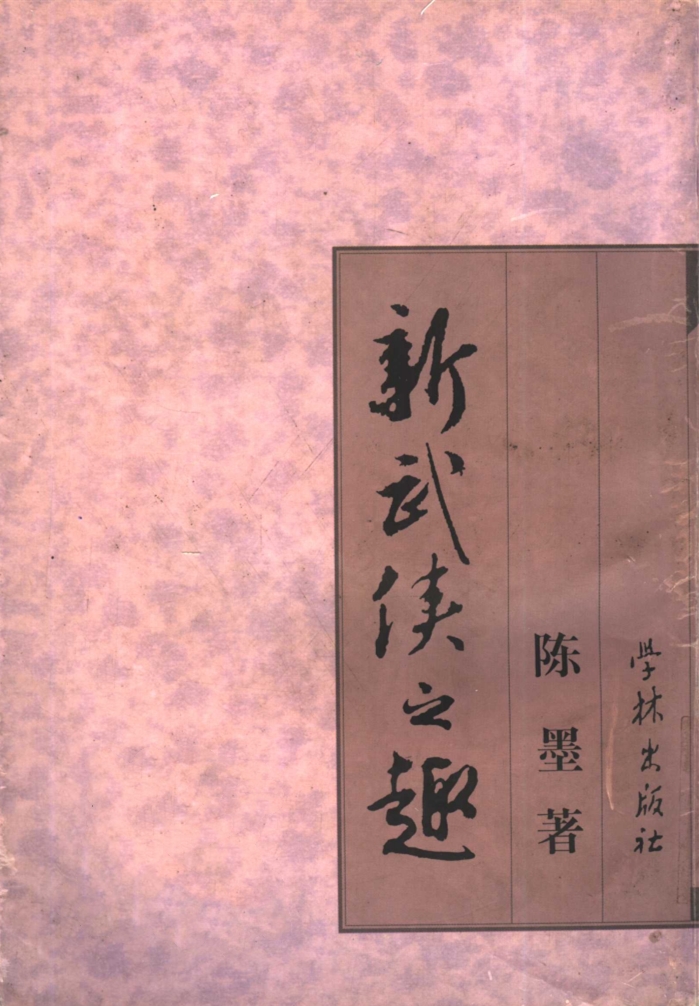 新武侠之趣
陈墨著
学林出版社